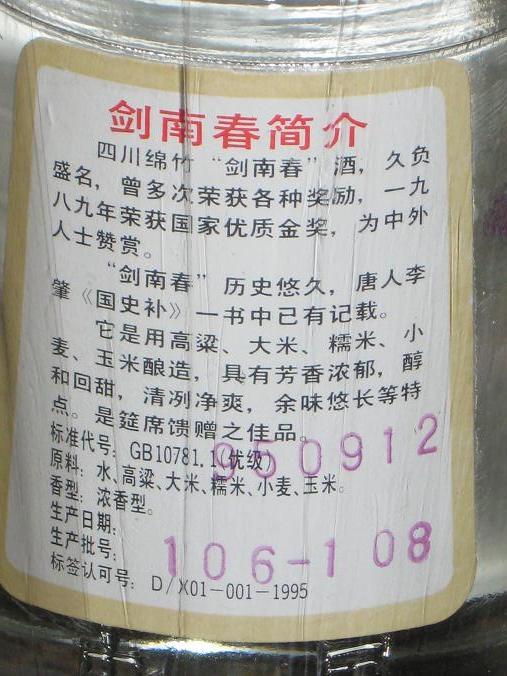 剑南春简介
四川绵竹“剑南春”酒，久负
盛名，曾多次荣获各种奖励，一九
八九年荣获国家优质金奖，为中外
人士赞赏。
“剑南春”历史悠久，唐人李
肇《国史补》一书中已有记载。
它是用高粱、大米、糯米、小
麦、玉米酿造，具有芳香浓郁，醇
和回甜，清洌净爽，余味悠长等特
点。是筵席馈赠之佳品。
标准代号：GB10781.1(优级)
原料：水、高粱、大米、糯米、小麦、玉米。
香型：浓香型。
生产日期：950912
生产批号：106-108
标签认可号：D/X01-001-1995